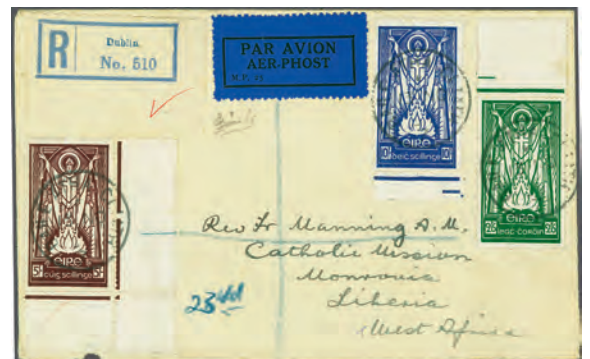 R
Dublin.
No. 510
PAR AVION
AER-PHOST
ÉIRE
10/- deiċ scillinge 10/-
ÉIRE
2/6 leaṫ ċoróin 2/6
ÉIRE
5/- cúig scillinge 5/-
Rev Fr Manning A. M.
Catholic Mission
Monrovia
Liberia
West Africa